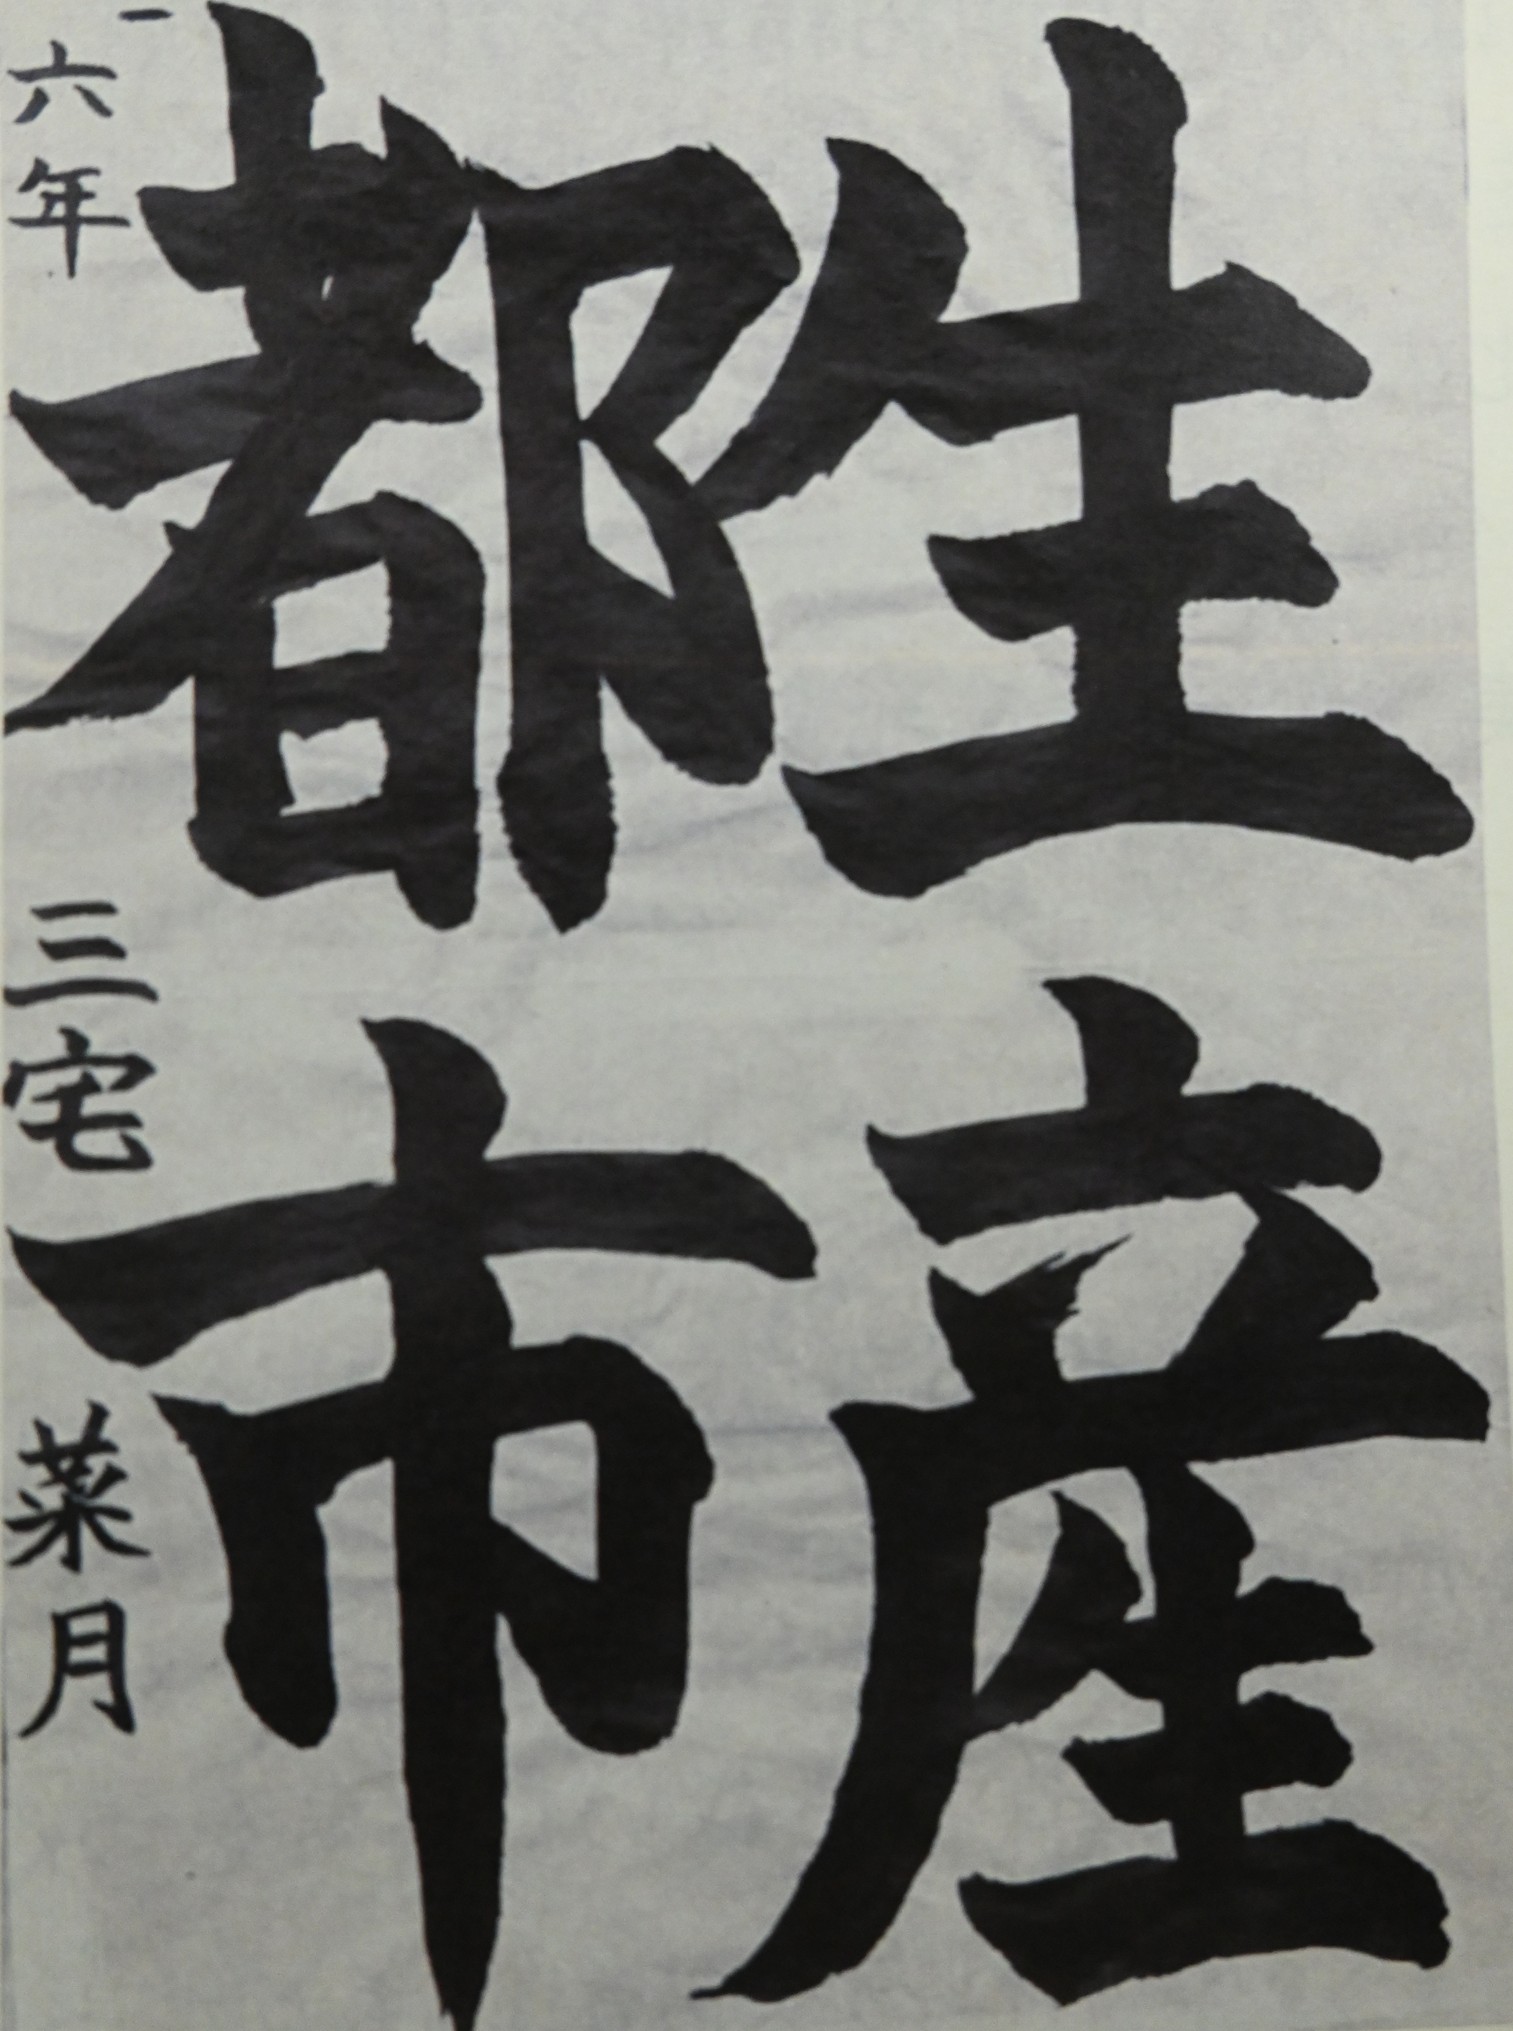 生産
都市
六年 三宅 菜月